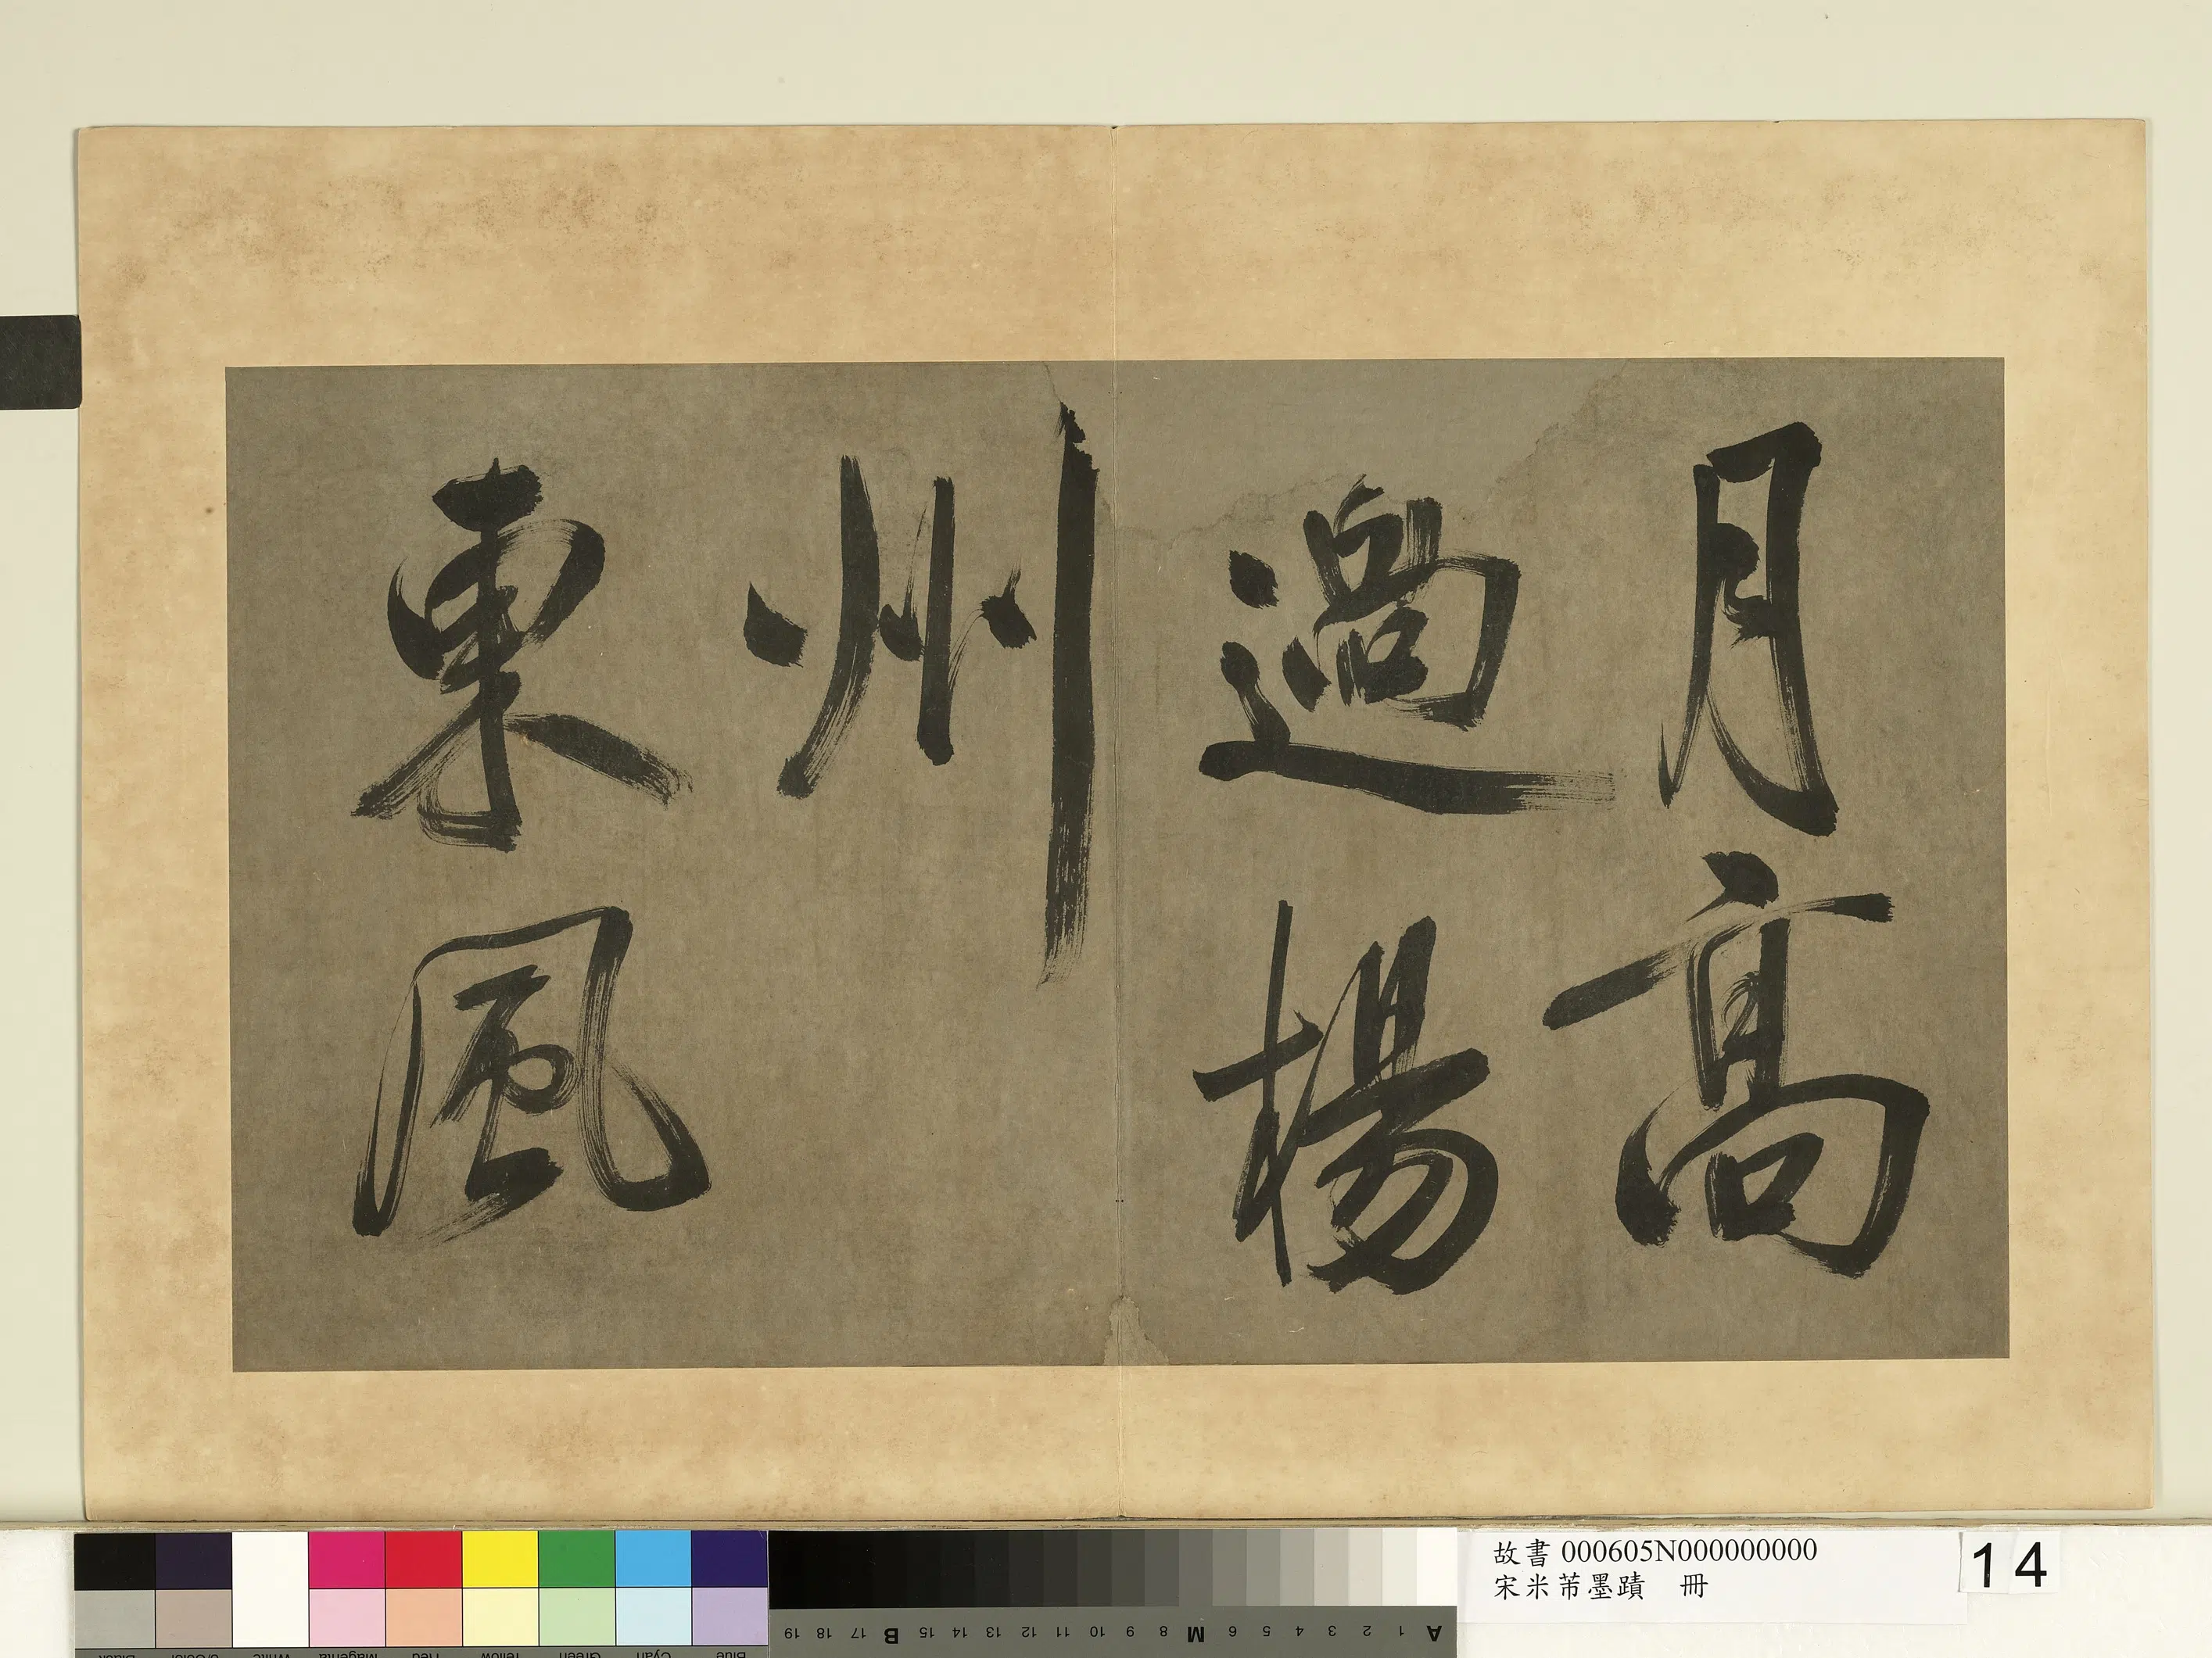 月高
過楊
州
東
風
故書 000605N000000000
宋米芾墨蹟 冊
14
19 18 17 B 15 14 13 12 11 10 9 8 M 6 5 4 3 2 1 A
Black 3/Color White Magenta Red Yellow Green Cyan Blue